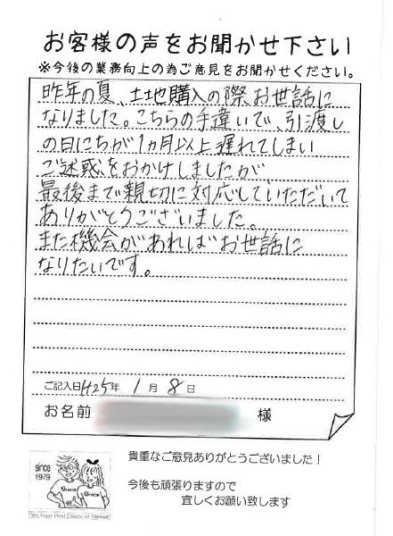 お客様の声をお聞かせ下さい
※今後の業務向上の為ご意見をお聞かせください。
昨年の夏、土地購入の際、お世話に
なりました。こちらの手違いで、引渡し
の日にちが1カ月以上遅れてしまい
ご迷惑をおかけしましたが、
最後まで親切に対応していただいて
ありがとうございました。
また機会があればお世話に
なりたいです。
ご記入日 H25年 1月 8日
お名前 様
貴重なご意見ありがとうございました！
今後も頑張りますので
宜しくお願い致します
since
1979